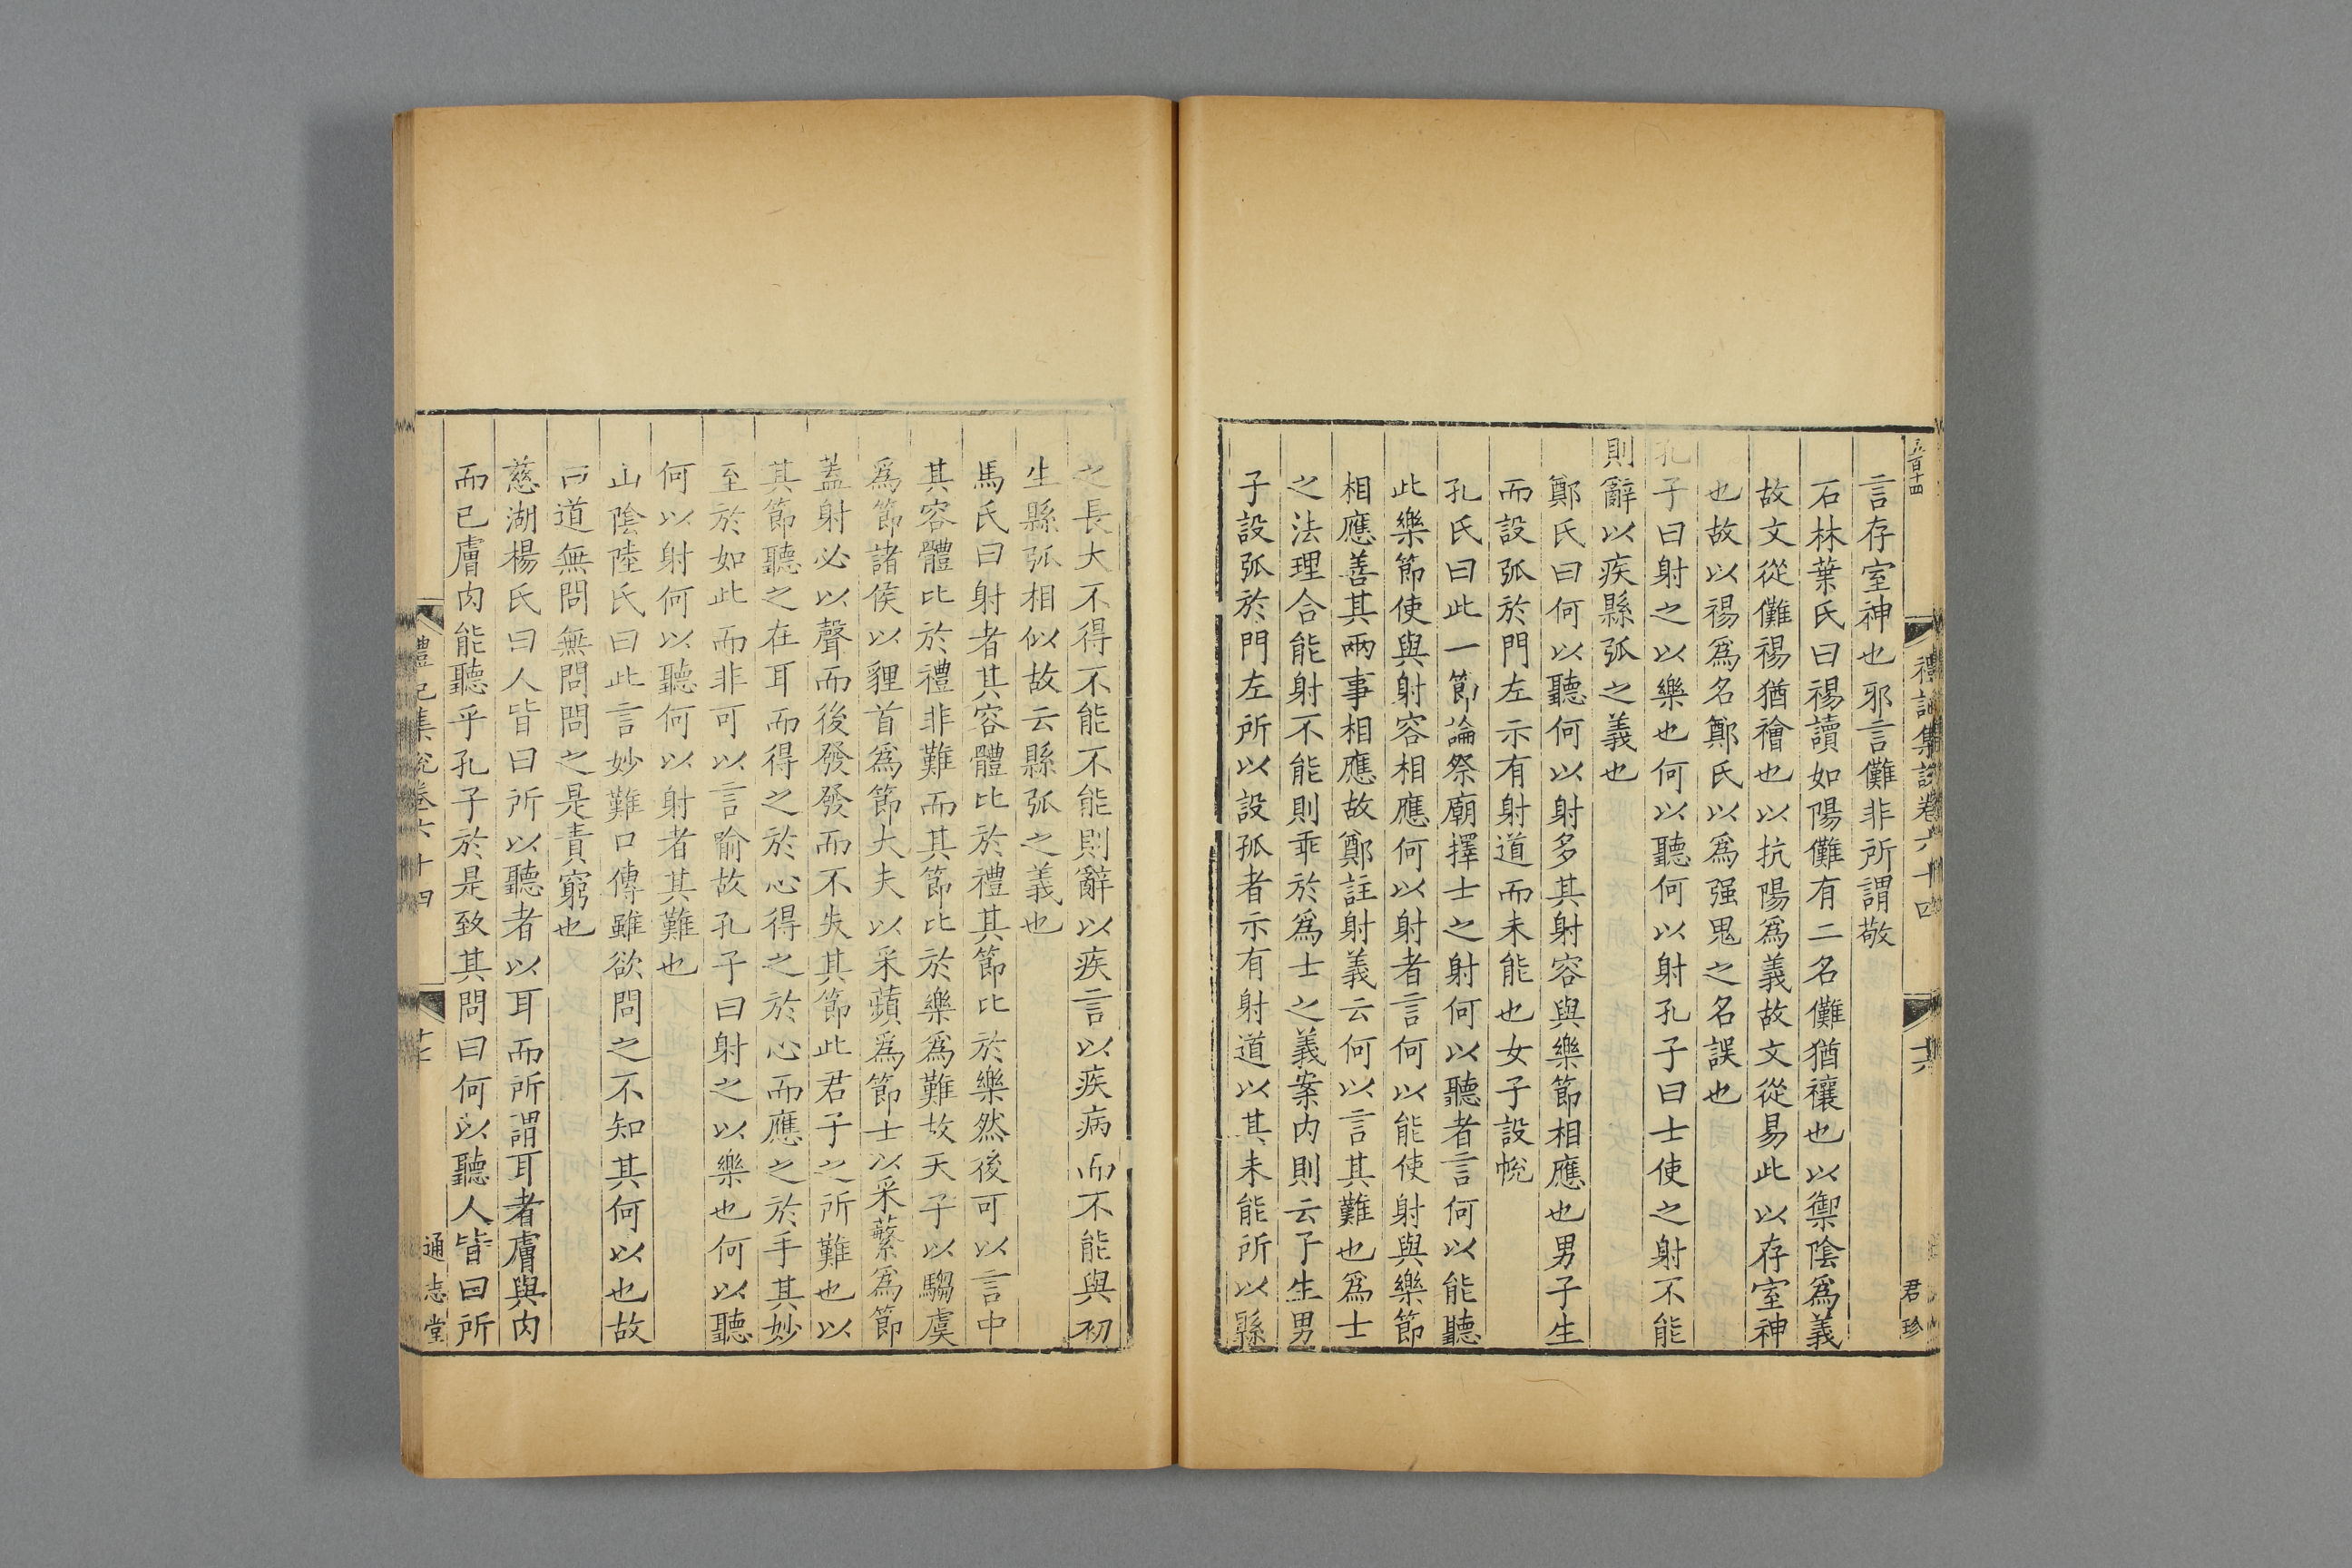 五百十四
禮記集說卷六十四
十六
君珍
言存室神也邪言儺非所謂敬
石林葉氏曰禓讀如陽儺有二名儺猶禳也以禦陰爲義
故文從儺禓猶禬也以抗陽爲義故文從易此以存室神
也故以禓爲名鄭氏以爲强鬼之名誤也
孔子曰射之以樂也何以聽何以射孔子曰士使之射不能
則辭以疾縣弧之義也
鄭氏曰何以聽何以射多其射容與樂節相應也男子生
而設弧於門左示有射道而未能也女子設帨
孔氏曰此一節論祭廟擇士之射何以聽者言何以能聽
此樂節使與射容相應何以射者言何以能使射與樂節
相應善其兩事相應故鄭註射義云何以言其難也爲士
之法理合能射不能則乖於爲士之義案内則云子生男
子設弧於門左所以設弧者示有射道以其未能所以縣
之長大不得不能不能則辭以疾言以疾病而不能與初
生縣弧相似故云縣弧之義也
馬氏曰射者其容體比於禮其節比於樂然後可以言中
其容體比於禮非難而其節比於樂爲難故天子以騶虞
爲節諸侯以貍首爲節大夫以采蘋爲節士以采蘩爲節
蓋射必以聲而後發發而不失其節此君子之所難也以
其節聽之在耳而得之於心得之於心而應之於手其妙
至於如此而非可以言喻故孔子曰射之以樂也何以聽
何以射何以聽何以射者其難也
山陰陸氏曰此言妙難口傳雖欲問之不知其何以也故
曰道無問無問問之是責窮也
慈湖楊氏曰人皆曰所以聽者以耳而所謂耳者膚與肉
而已膚肉能聽乎孔子於是致其問曰何以聽人皆曰所
禮記集說卷六十四
十七
通志堂